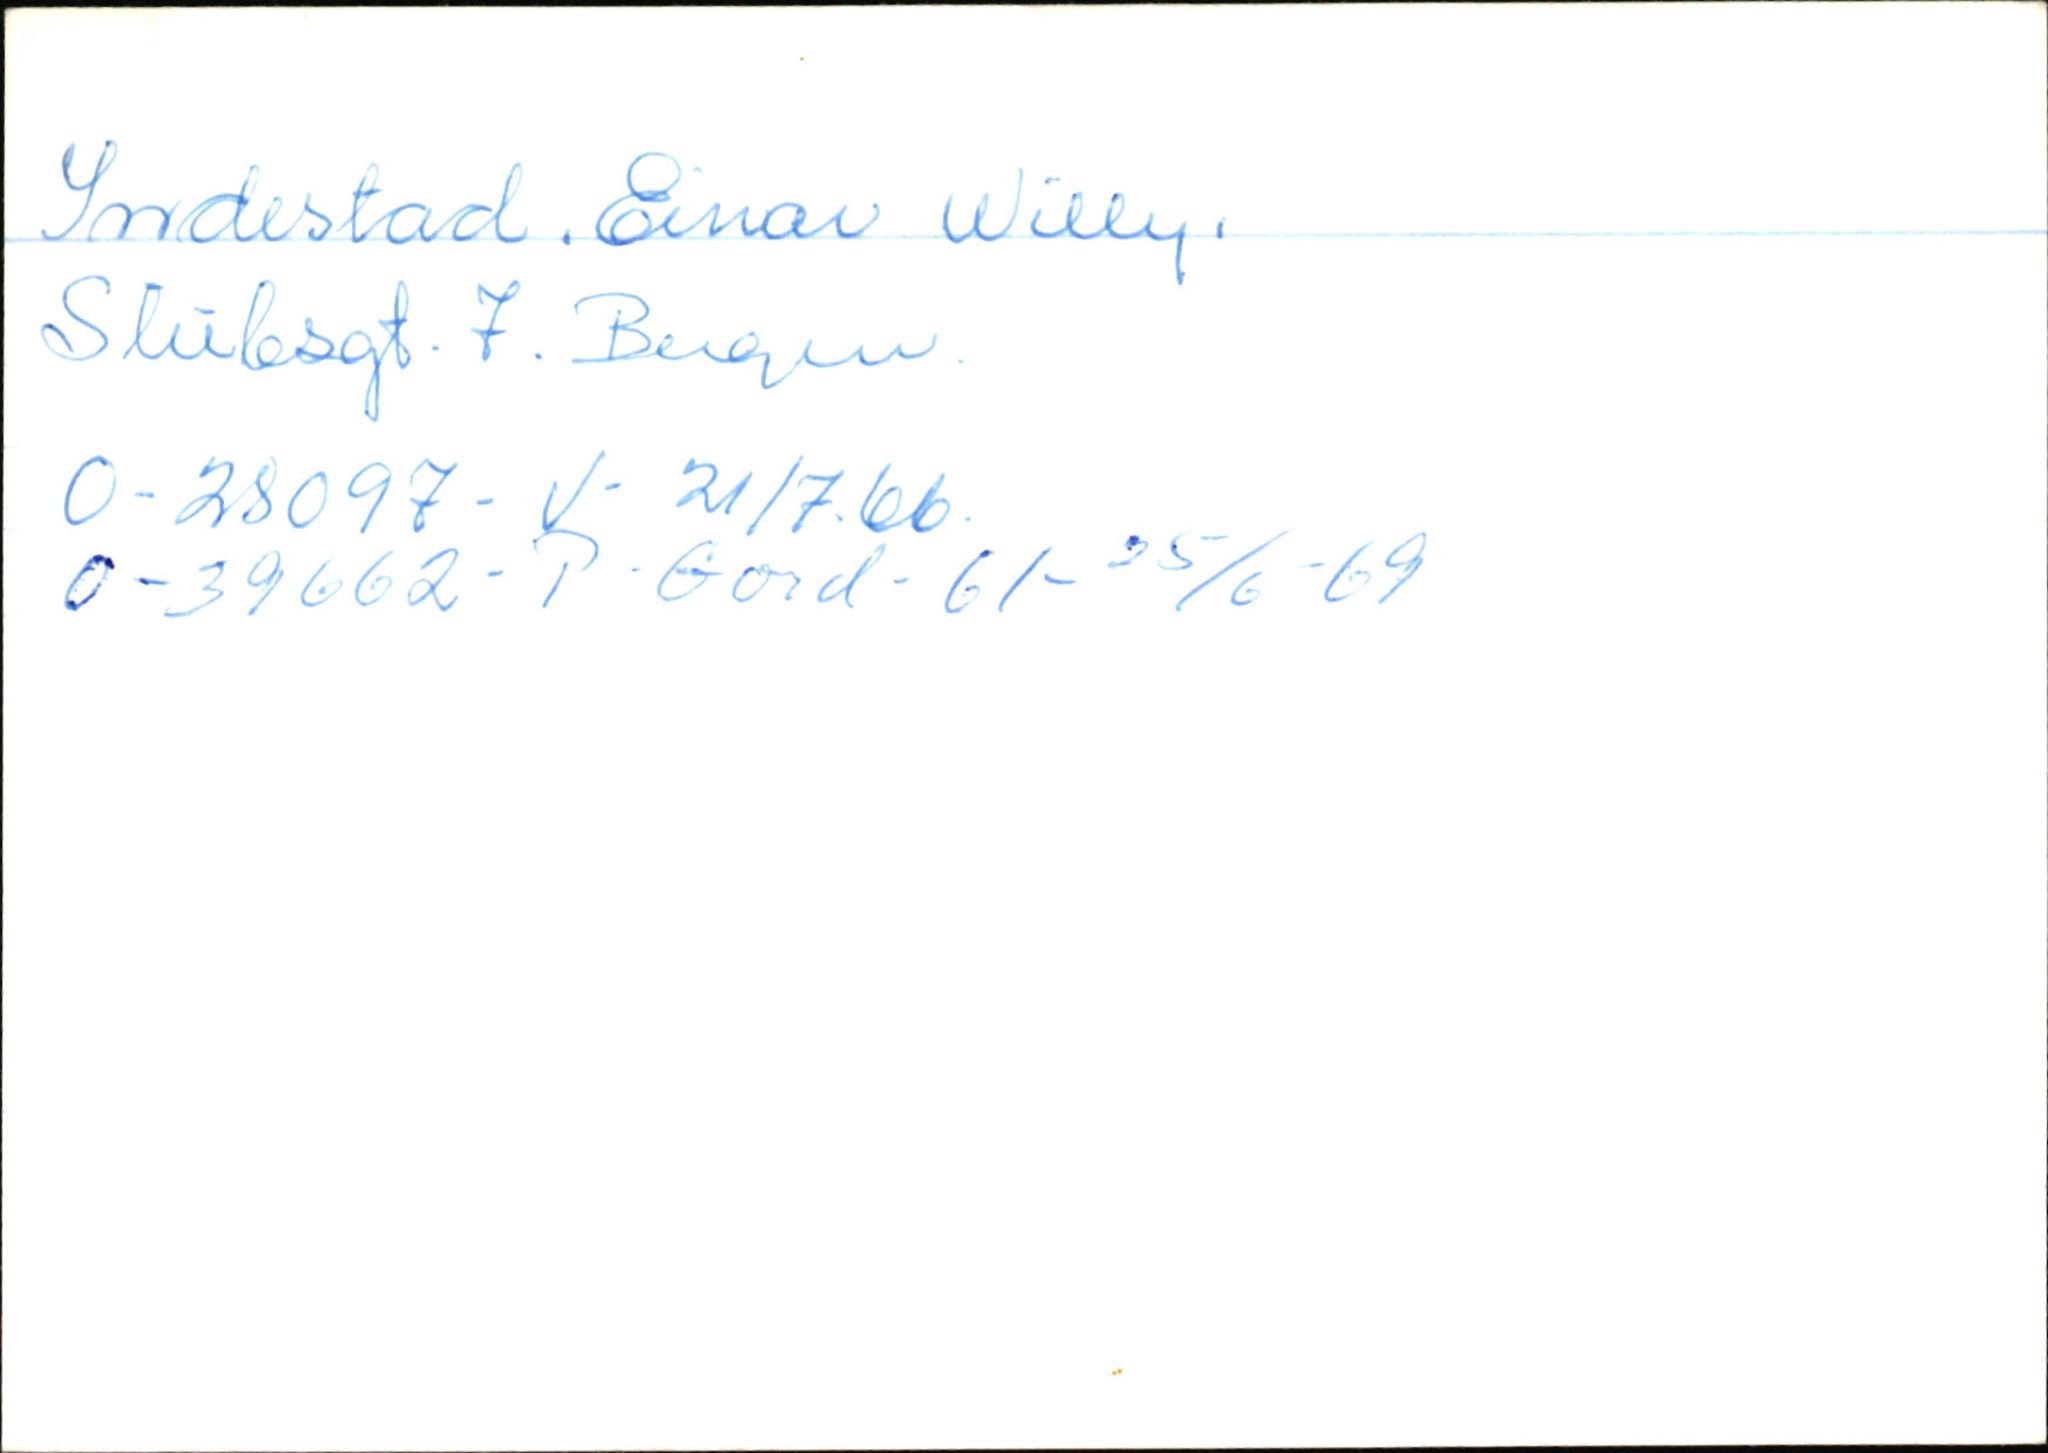 Indestad. Einar Willy.
Slübsgt. 7. Bergen.
O-28097- V- 21/7.66.
O-39662- P- Ford- 61- 25/6-69